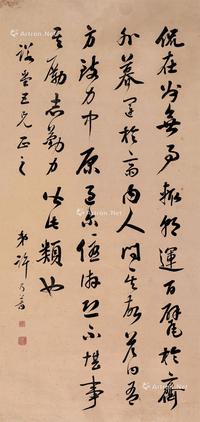 侃在州無事輒朝運百甓於齋
外暮運於齋內人問其故答曰吾
方致力中原過爾優游恐不堪事
其勵志勤力皆此類也
弟許乃普